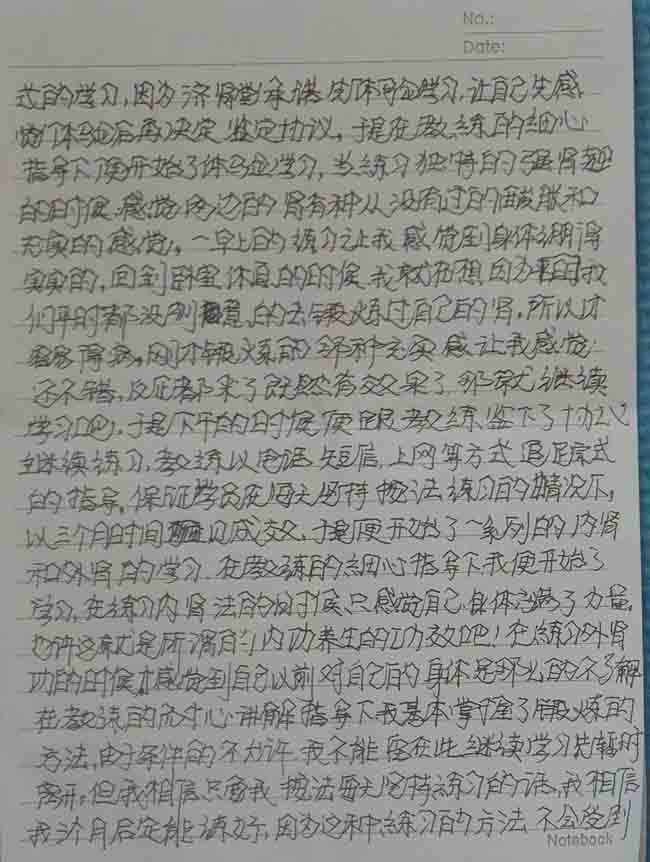 No.:
Date:
式的学习,因为济肾堂承诺先体验学习,让自己先感
觉体验后再决定鉴定协议。于是在教练的细心
指导下便开始了体验学习,当练习独特的强肾
的时候,感觉两边的肾有种从没有过的发胀和
充实的感觉。一早上的练习让我感觉到身体绷得
实实的,回到卧室休息的时候我就在想因为平时我
们平时都没刻意的去锻炼过自己的肾,所以才
容易得病,刚才锻炼的那种充实感让我感觉
还不错,反正都来了既然有效果了那就继续
学习吧,于是下午的时候便跟教练签下了协议
继续练习,教练以电话,短信,上网等方式追踪式
的指导,保证学员在每天坚持按法练习的情况下,
以三个月时间见成效,于是便开始了一系列的内肾
和外肾的学习.在教练的细心指导下我便开始了
学习,在练习内肾法的时候,只感觉自己身体充满了力量,
也许这就是所谓的内功养生的功效吧!在练习外肾
功的时候,才感觉到自己以前对自己的身体是那么的不了解
在教练的耐心讲解指导下我基本掌握了锻炼的
方法,由于条件的不允许我不能留在此继续学习先暂时
离开,但我相信只要我按法每天坚持练习的话,我相信
我3个月后定能练好,因为这种练习的方法不会受到
Notebook